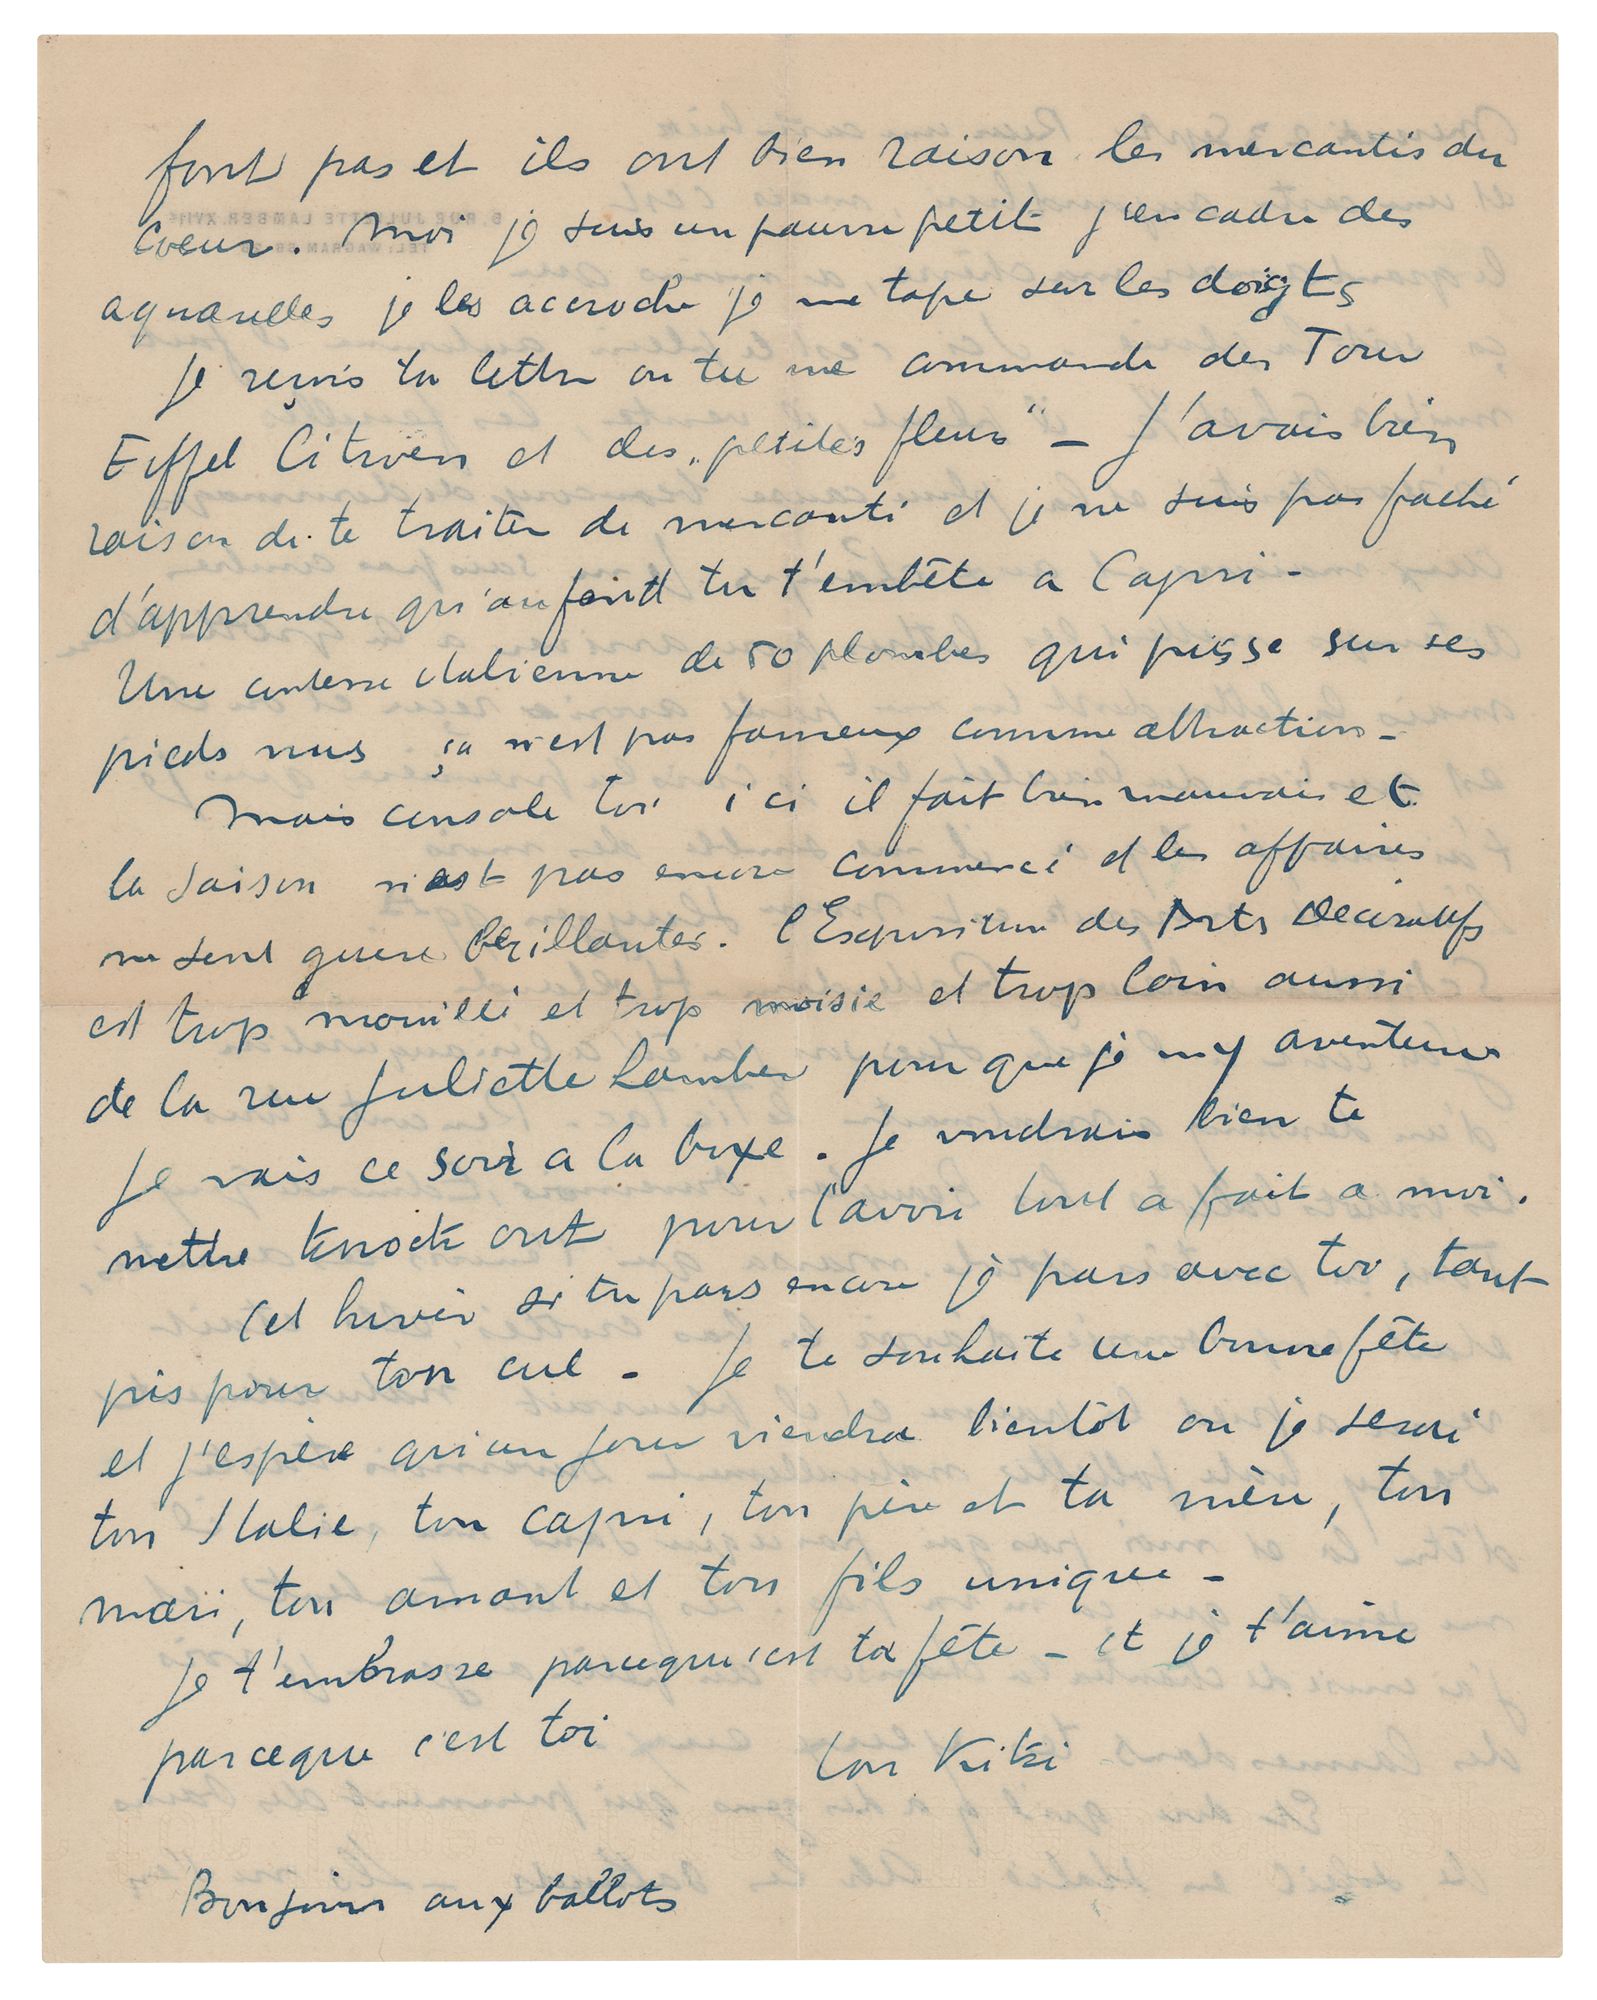 font pas et ils ont bien raison les mercantis du
coeur. Moi je suis un pauvre petit j'encadre des
aquarelles je les accroche je me tape sur les doigts
Je reçois ta lettre ou tu me commande des Tour
Eiffel Citroën et des „petites fleurs" - J'avais bien
raison de te traiter de mercanti et je ne suis pas faché
d'apprendre qu'au fond tu t'embête a Capri -
Une contesse italienne de 50 plombes qui pisse sur ses
pieds nus ça n'est pas fameux comme attraction -
Mais console toi ici il fait bien mauvais et
la saison n'est pas encore commencé et les affaires
ne sont guere brillantes. l'Exposition des Arts Décoratifs
est trop mouillé et trop moisie et trop loin aussi
de la rue Juliette Lamber pour que je m'y aventure
Je vais ce soir a la boxe. Je voudrais bien te
mettre knock out pour t'avoir tout a fait a moi.
Cet hiver si tu pars encore je pars avec toi, tant
pis pour ton cul - Je te souhaite une bonne fête
et j'espère qu'un jour viendra bientôt ou je serai
ton Italie, ton Capri, ton père et ta mère, ton
mari, ton amant et ton fils unique -
Je t'embrasse parceque c'est ta fête - et je t'aime
parceque c'est toi
ton Kiki
Bonjour aux ballots